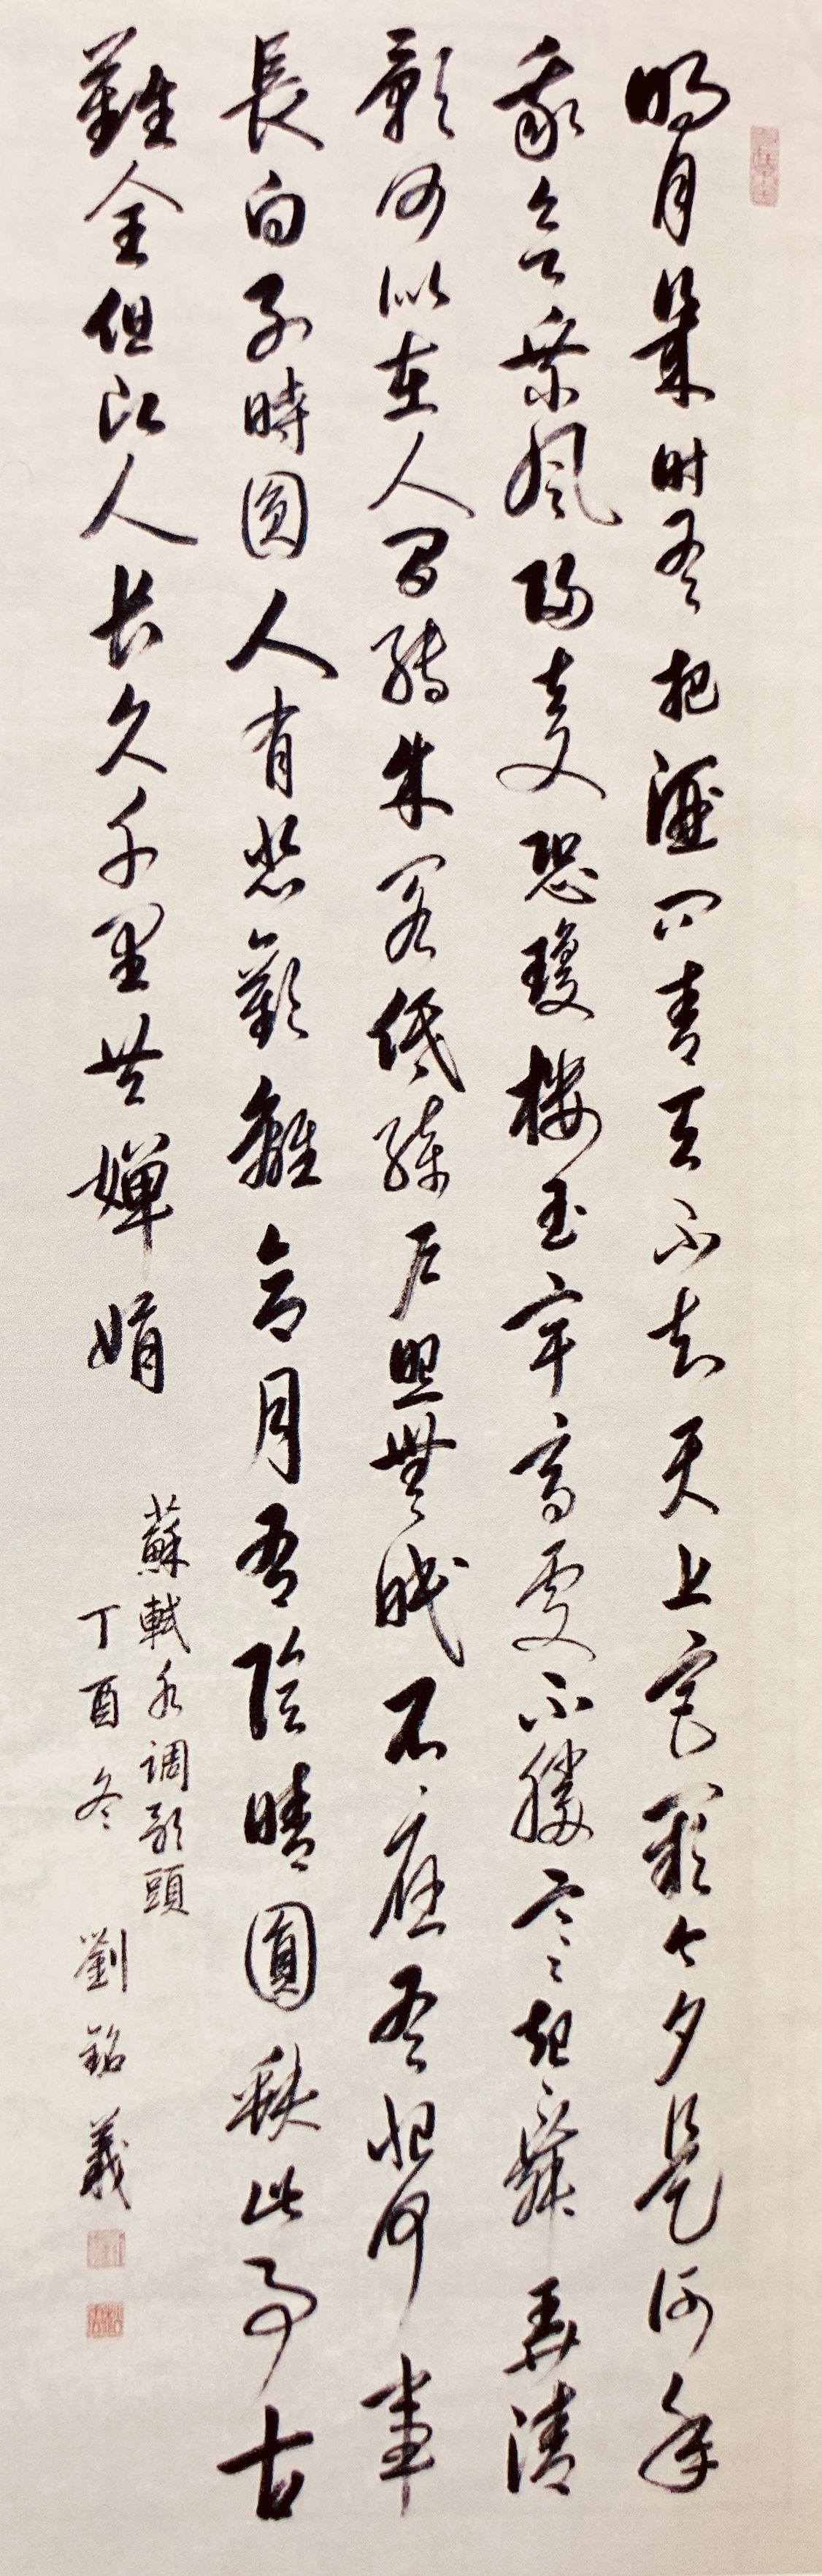 明月幾时有把酒問青天不知天上宮闕今夕是何年
我欲乘風歸去又恐瓊樓玉宇高處不勝寒起舞弄清
影何似在人間轉朱閣低綺戶照無眠不應有恨何事
長向別時圓人有悲歡離合月有陰晴圓缺此事古
難全但願人長久千里共嬋娟
蘇軾水調歌頭
丁酉冬 劉銘義